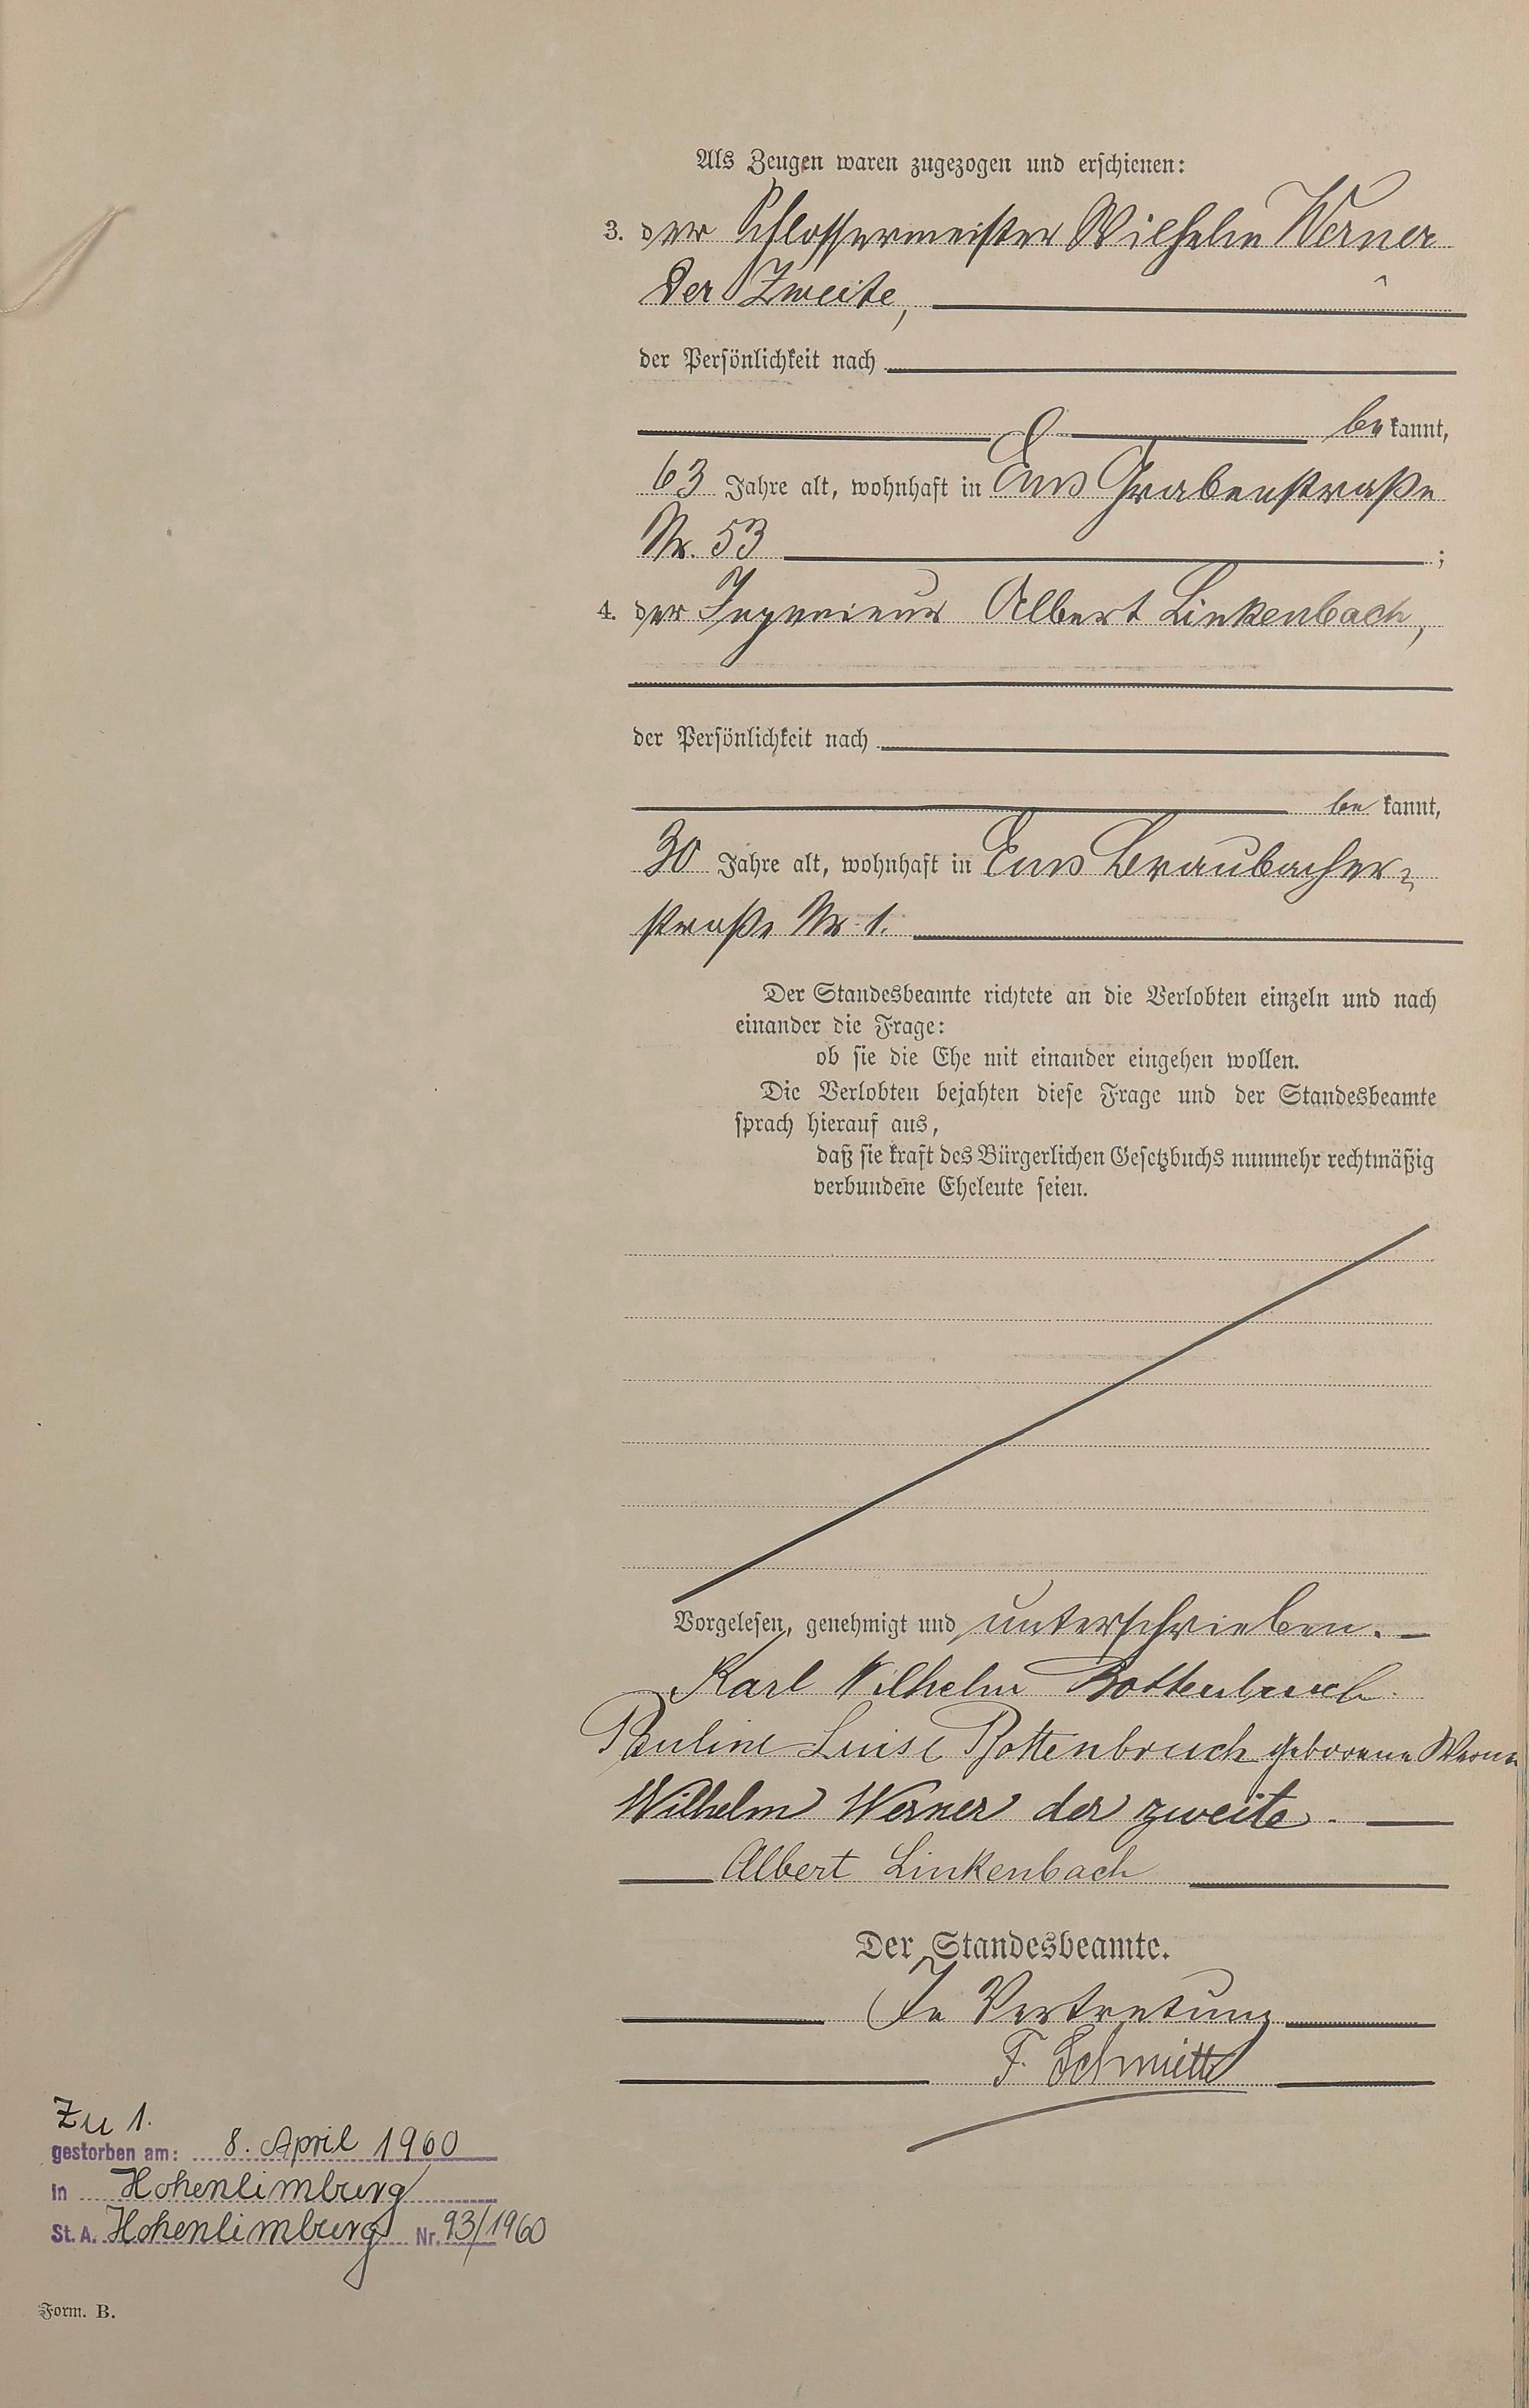 Als Zeugen waren zugezogen und erschienen:
3. der Schlossermeister Wilhelm Werner
der Zweite,
der Persönlichkeit nach
be kannt,
63 Jahre alt, wohnhaft in Ems Grabenstraße
Nr. 53 ;
4. der Ingenieur Albert Linkenbach,
der Persönlichkeit nach
be kannt,
30 Jahre alt, wohnhaft in Ems Braubacher-
straße Nr. 1.
Der Standesbeamte richtete an die Verlobten einzeln und nach
einander die Frage:
ob sie die Ehe mit einander eingehen wollen.
Die Verlobten bejahten diese Frage und der Standesbeamte
sprach hierauf aus,
daß sie kraft des Bürgerlichen Gesetzbuchs nunmehr rechtmäßig
verbundene Eheleute seien.
Vorgelesen, genehmigt und unterschrieben. —
Karl Wilhelm Bottenbruch
Pauline Luise Bottenbruch geborene Werner
Wilhelm Werner der zweite.
Albert Linkenbach
Der Standesbeamte.
In Vertretung
F. Schmitt
Zu 1.
gestorben am: 8. April 1960
in Hohenlimburg
St. A. Hohenlimburg Nr. 93/1960
Form. B.